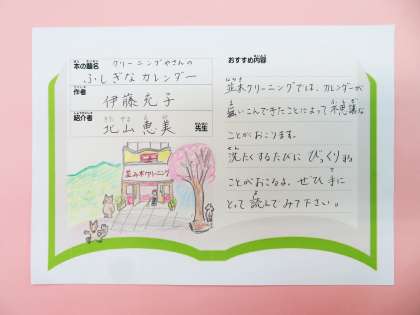 本の題名
クリーニングやさんの
ふしぎなカレンダー
作者
伊藤充子
紹介者
北山恵美
先生
並み木クリーニング
おすすめ内容
並木クリーニングでは、カレンダーが
まいこんできたことによって不思議な
ことがおこります。
洗たくするたびに びっくりな
ことがおこるよ。ぜひ手に
とって読んでみて下さい。